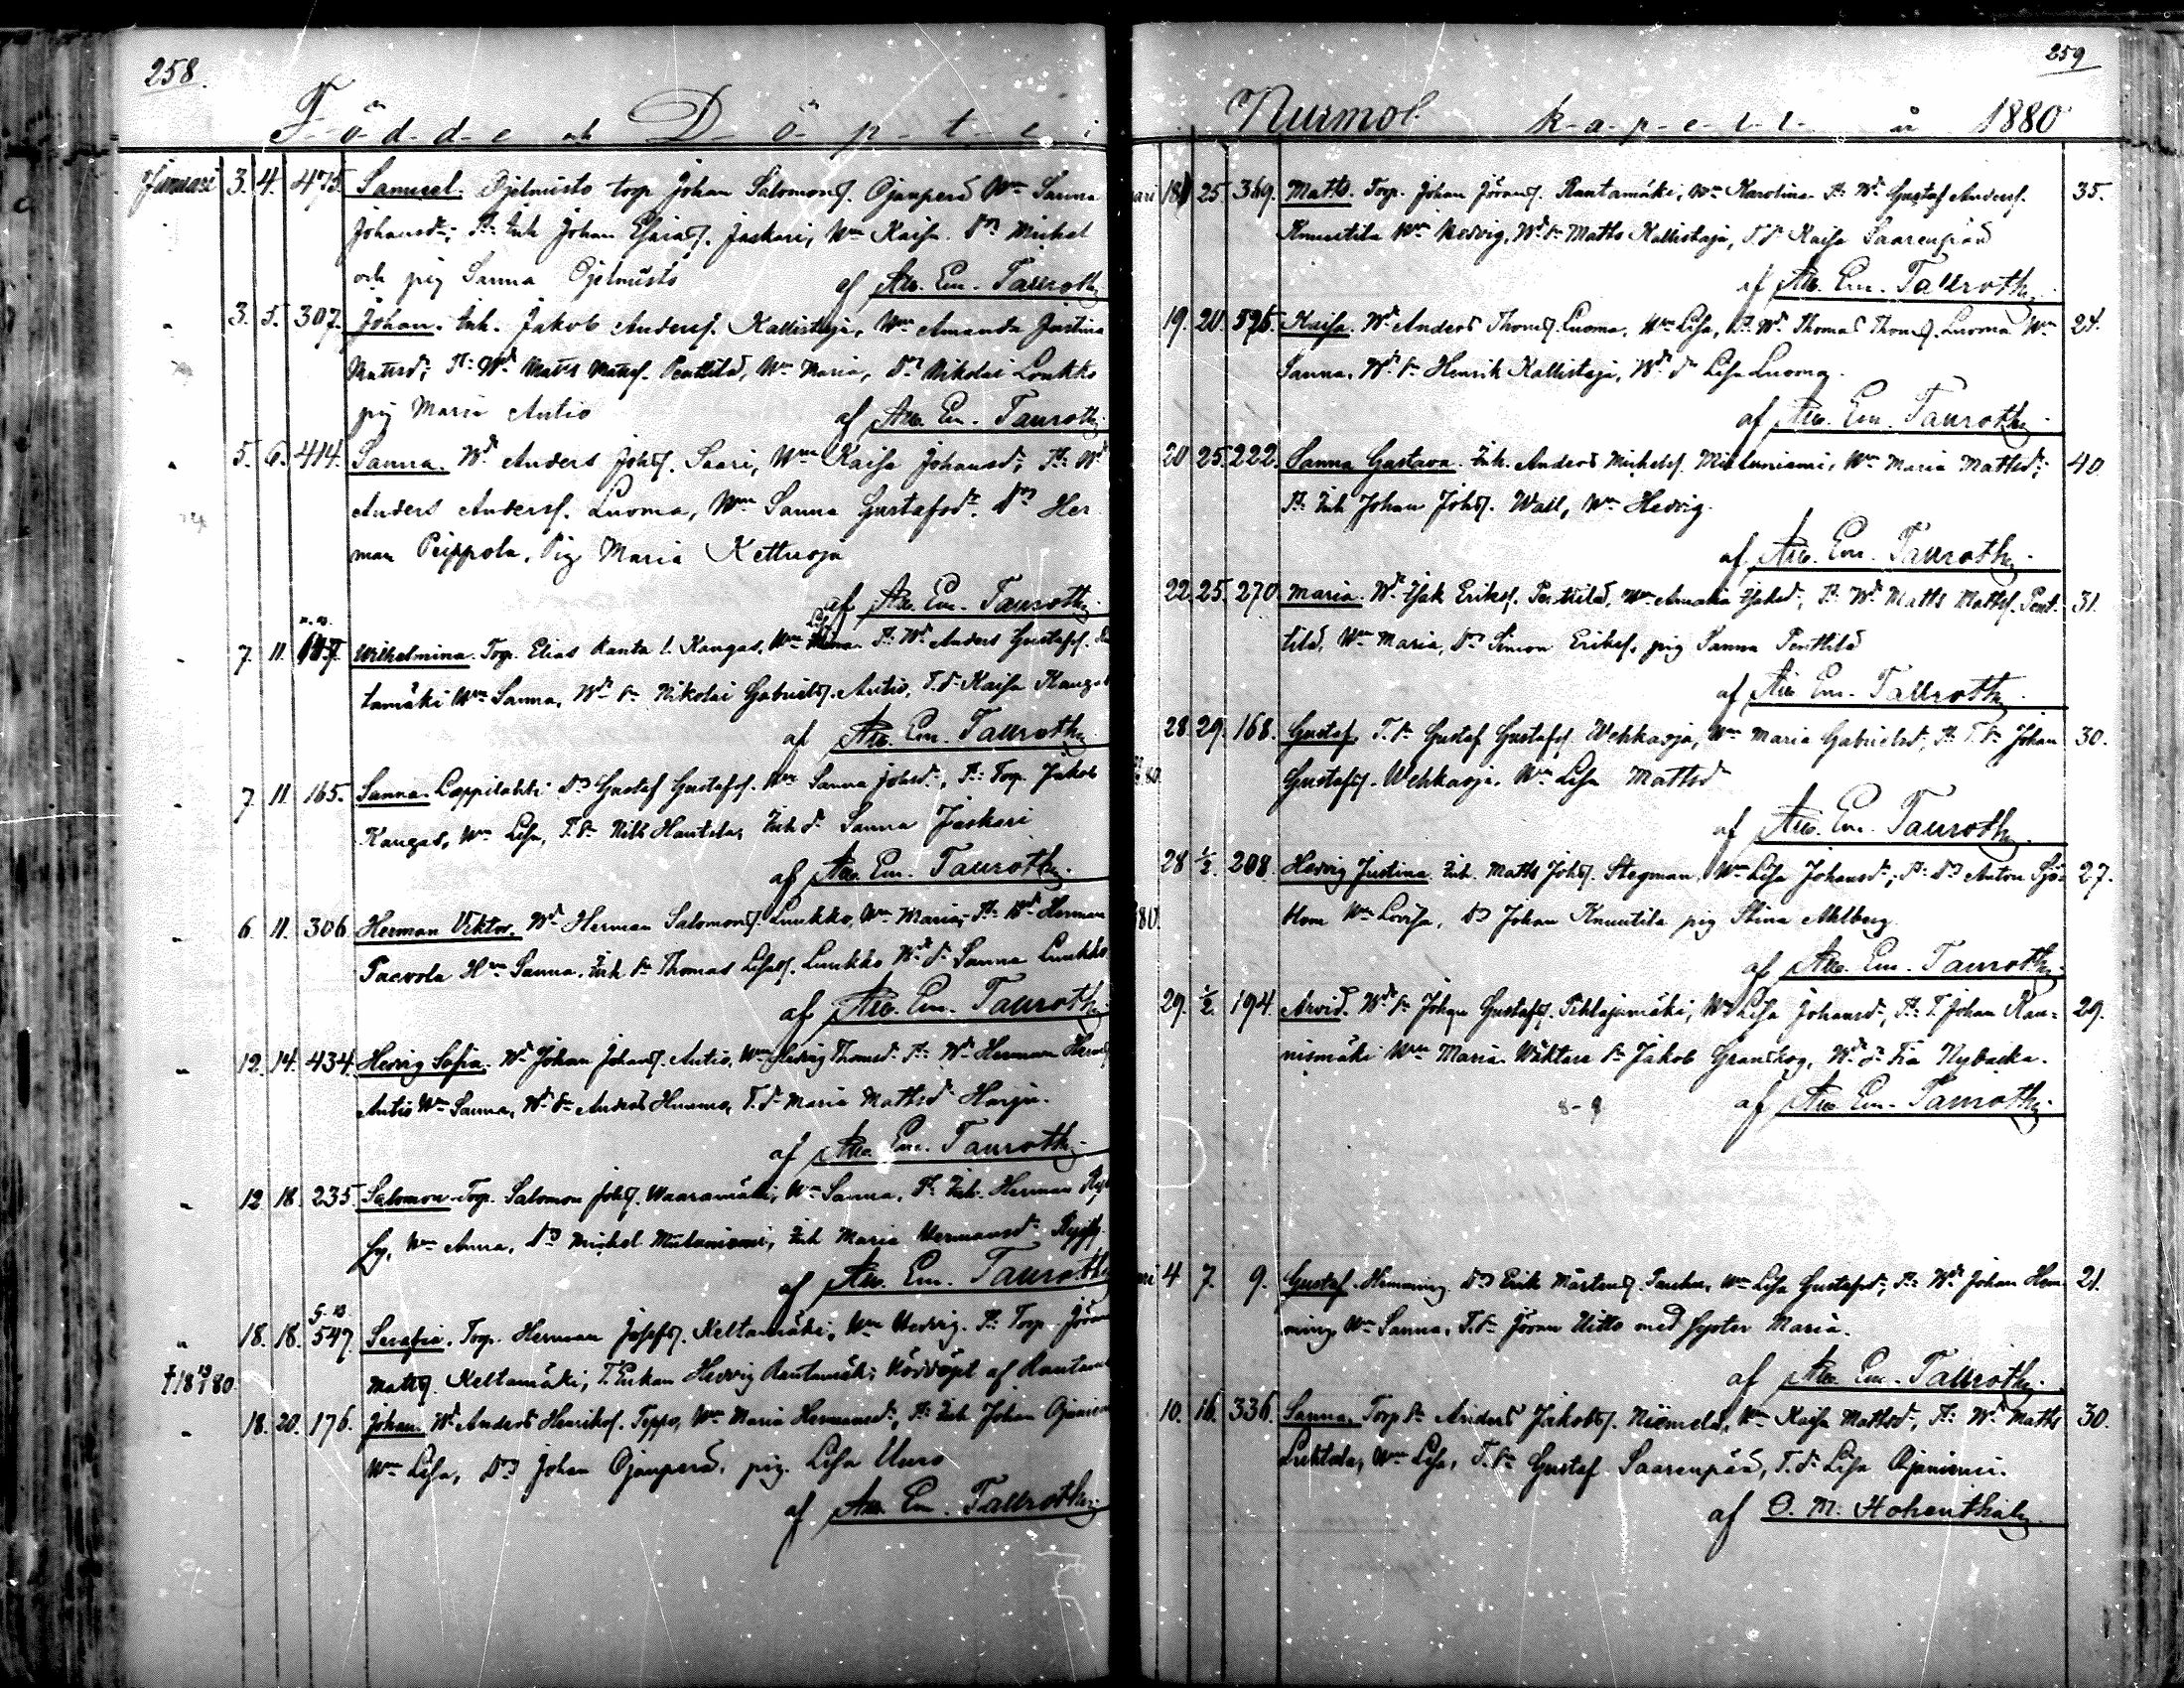 258.
Födde och Döpte i
Januari 3. 4. 475. Samuel. Ojelmisto torp. Johan Salomonss. Ojanperä Wm Sanna
Johansdr; Ft: Inh Johan Esaiass. Jaskari, Wm Kaisa. Dr Michel
och pig Sanna Ojelmisto af Alb. Em. Tallroth
" 3. 5. 307. Johan. Inh. Jakob Anderss. Kallistaja, Wm Amanda Justina
Mattsdr; Ft: Wd Matts Mattss. Penttilä, Wm Maria, Dr Nikolai Loukko
pig Maria Antio af Alb. Em. Tallroth
" 5. 6. 414. Sanna. Wd Anders Johss. Saari, Wm Kaisa Johansdr; Ft: Wd
Anders Anderss. Luoma, Wm Sanna Gustafsdr. Dr Her
man Peippola, Pig Maria Kettuoja
af Alb. Em. Tallroth
" 7. 11. Wilhelmina. Torp. Elias Kanta l. Kangas, Wm Lisa Ft: Wd Anders Gustafss.
tamäki Wm Sanna, Wd Sn Nikolai Gabrielss. Antio, T.dr Kaisa Kangas
af Alb. Em. Tallroth
" 7. 11. 165. Sanna. Lappilahti Dr Gustaf Gustafss. Wm Sanna Johsdr, Ft: Torp. Jakob
Kangas, Wm Lisa, T.Sn Nils Hautala, Inh dr Sanna Jaskari
af Alb. Em. Tallroth
" 6. 11. 306. Herman Viktor. Wd Herman Salomonss. Luukko, Wm Maria, Ft: Wd Herman
Paavola Wm Sanna. Inh Sn Thomas Lisass. Luukko Wd dr Sanna Luukko
af Alb. Em. Tallroth
" 12. 14. 434. Hedvig Sofia. Wd Johan Johanss. Antio, Wm Hedvig Thomsdr Ft: Wd Herman
Antio Wm Sanna, Wd Sn Anders Huumo, T.dr Maria Mattsdr Harju.
af Alb. Em. Tallroth
" 12. 18. 235. Salomon. Torp. Salomon Johss. Waaramäki, Wm Sanna, Ft: Inh. Herman
Wm Anna, Dr Michel Mulaniemi, Inh Maria Hermansdr
af Alb. Em. Tallroth
" 18. 18. 547. Serafia. Torp. Herman Josefss. Keltamäki, Wm Hedvig. Ft: Torp. Jöran
Mattss. Keltamäki, T. Enkan Hedvig Rautamäki; Nöddöpt af
" 18. 20. 176. Johan. Wd Anders Henrikss. Teppo, Wm Maria Hermansdr, Ft: Inh. Johan
Wm Lisa, Dr Johan Ojanperä, pig. Lisa Uuro
af Alb. Em. Tallroth
259
Nurmo kapell år 1880
25. 369. Matts. Torp. Johan Jöranss. Rautamäki, Wm Karolina. Ft: Wd Gustaf Anderss. 35.
Knuutila Wm Hedvig, Wd Sn Matts Kallistaja, T.dr Kaisa Saarenpää
af Alb. Em. Tallroth
19. 20. 526. Kaisa. Wd Anders Thomss. Luoma, Wm Lisa, Ft: Wd Thomas Thomss. Luoma Wm 24.
Sanna. Wd Sn Henrik Kallistaja, Wd dr Lisa Luoma.
af Alb. Em. Tallroth
20 25. 222. Sanna Gustava. Inh. Anders Michelss. Mulaniemi, Wm Maria Mattsdr; 40
Ft: Inh Johan Johss. Wall, Wm Hedvig.
af Alb. Em. Tallroth
22. 25. 270. Maria. Wd Isak Erikss. Penttilä, Wm Amalia Isaksdr, Ft: Wd Matts Mattss. Pent- 31.
tilä, Wm Maria, Dr Simon Erikss. pig Sanna Penttilä
af Alb. Em. Tallroth
28. 29. 168. Gustaf. T. Sn Gustaf Gustafss. Wehkaoja, Wm Maria Gabrielsdr, Ft: T. Sn Johan 30.
Gustafss. Wehkaoja. Wm Lisa Mattsdr
af Alb. Em. Tallroth
28 1/2. 208. Hedvig Justina. Inh. Matts Johss. Stegman, Wm Lisa Johansdr; Ft: Dr Anton Sjö- 27.
blom Wm Lovisa, Dr Johan Knuutila pig Stina Ahlberg
af Alb. Em. Tallroth
29. 1/2. 194. Arvid. Wd Sn Johan Gustafss. Pihlajamäki, Wm Lisa Johansdr, Ft: T. Johan Rau- 29.
nismäki Wm Maria. Wäktare Sn Jakob Granskog, Wd dr Fia Nybacka.
8-9 af Alb. Em. Tallroth
4. 7. 9. Gustaf. Hemming Dr Erik Mårtenss. Wm Lisa Gustafsdr, Ft: Wd Johan Hem- 21.
ming Wm Sanna, T. Sn Jöran Uitto med syster Maria.
af Alb. Em. Tallroth
10. 16. 336. Sanna. Torp Sn Anders Jakobss. Niemelä, Wm Kaisa Mattsdr, Ft: Wd Matts 30.
Wm Lisa, T. Sn Gustaf Saarenpää, T. dr Lisa Ojaniemi.
af O. M. Hohenthal